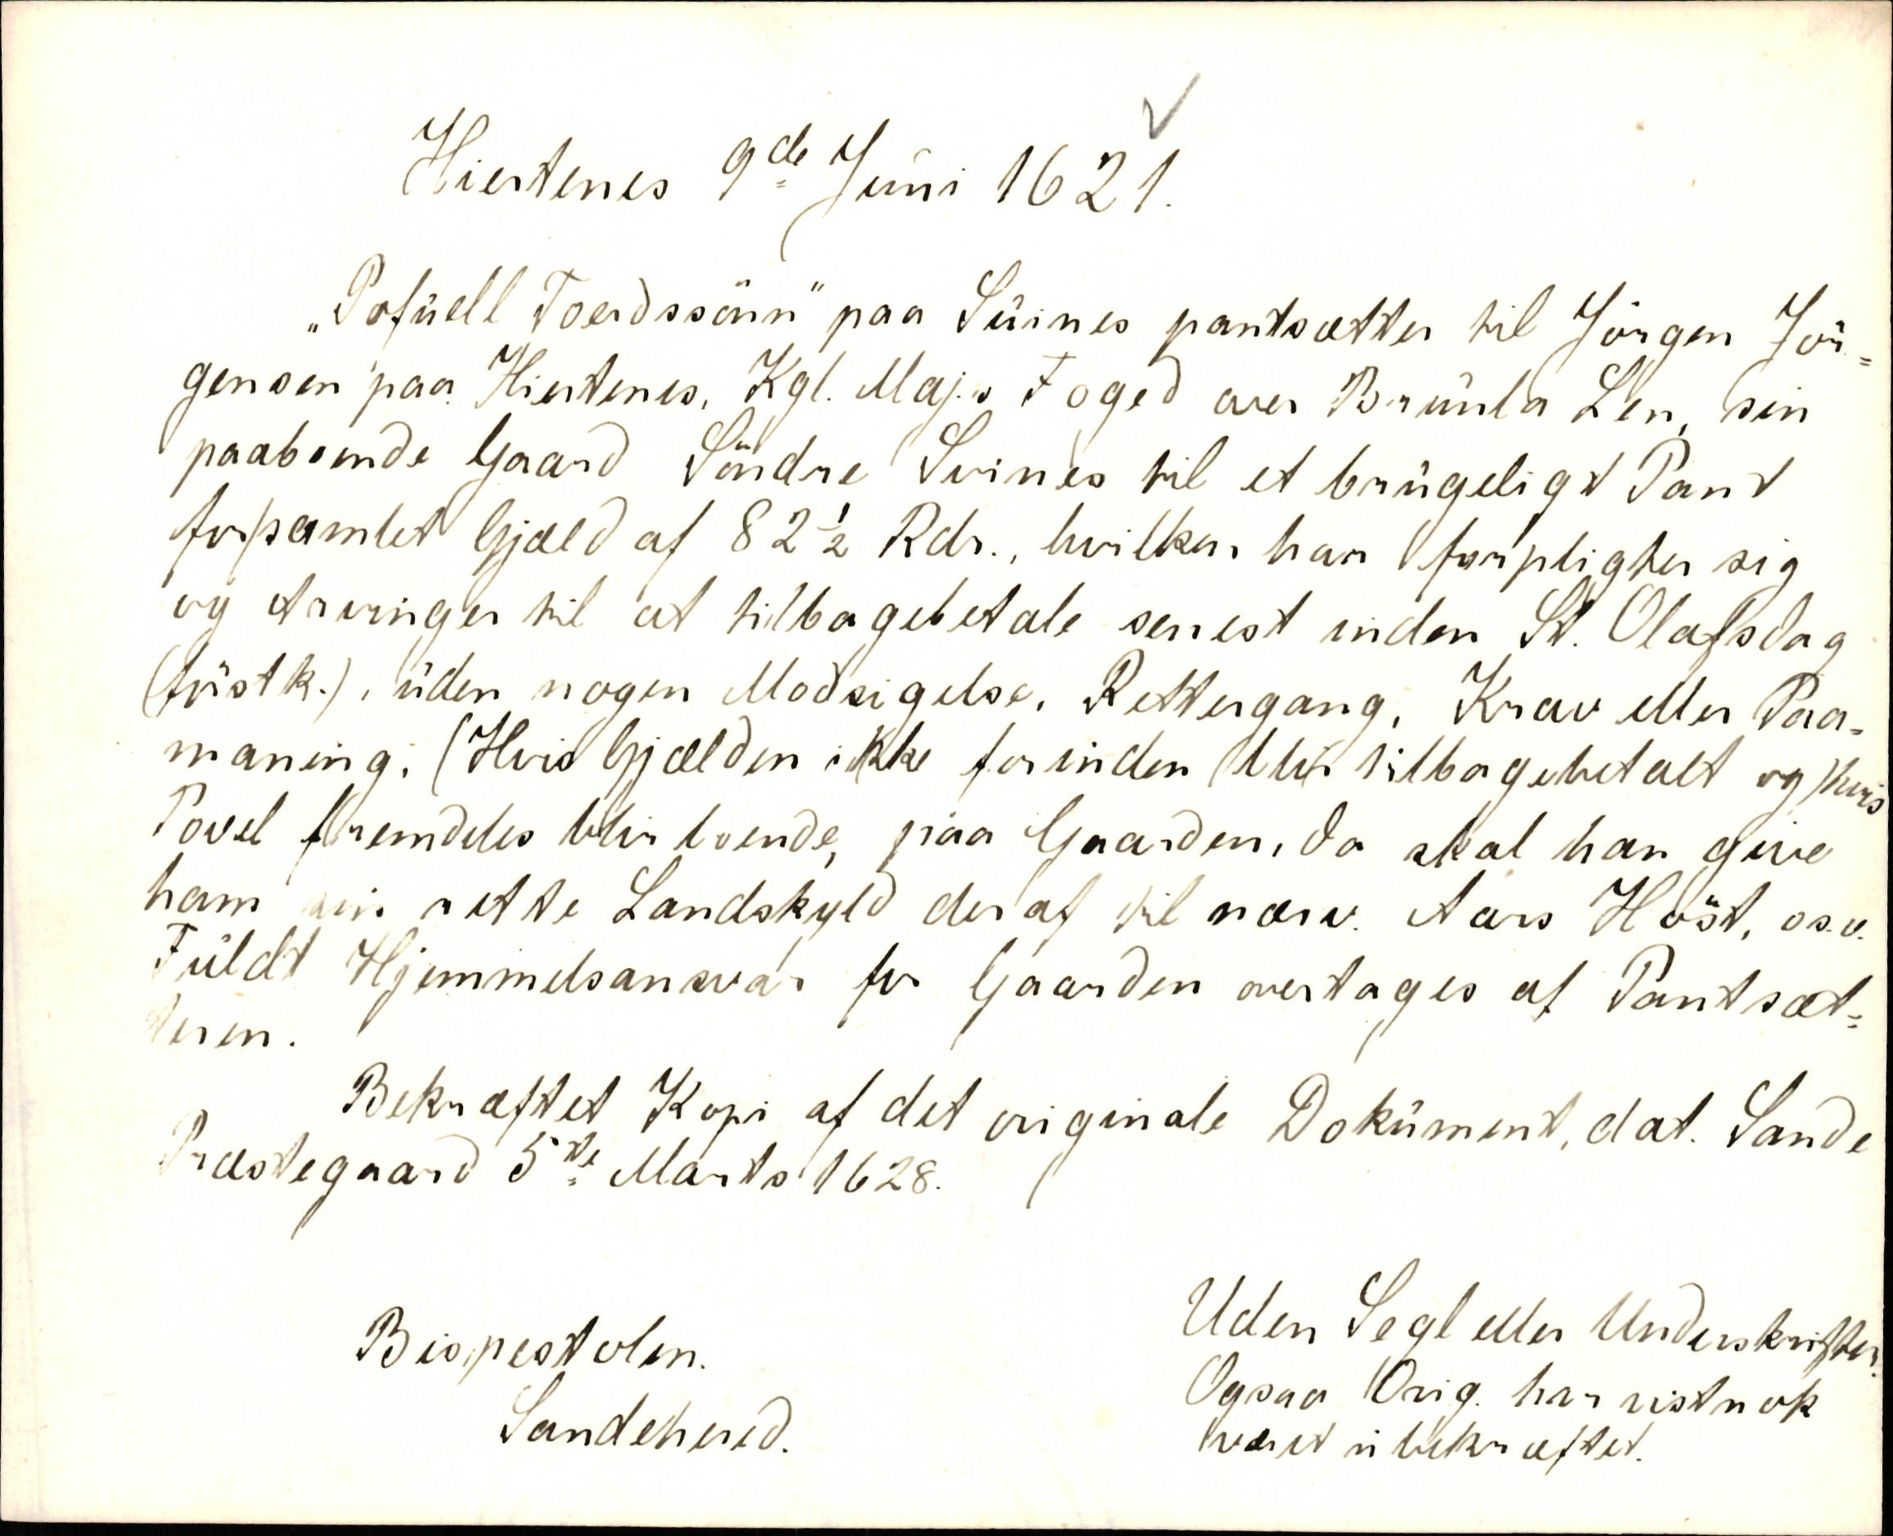 Hiertenes 9de Juni 1621.
"Pofuell Toerdssönn" paa Suines pantsætter til Jörgen Jör=
gensen paa Hiertenes, Kgl. Maj.s Foged over Brunla Len, sin
paaboende Gaard Söndre Svines til et brugeligt Pant
for samlet Gjæld af 82½ Rdr., hvilken han forpligter sig
og Arvinger til at tilbagebetale senest inden St. Olafsdag
(förstk.), uden nogen Modsigelse, Rettergang, Krav eller Paa=
maning. (Hvis Gjælden ikke forinden blir tilbagebetalt og) hvis
Povel fremdeles blir boende paa Gaarden, da skal han give
ham sin rette Landskyld deraf til nærv. Aars Höst, o.s.v.
Fuldt Hjemmelsansvar for Gaarden overtages af Pantsæt=
teren.
Bekræftet Kopi af det originale Dokument, dat. Sande
Præstegaard 5te Marts 1628.
Bispestolen.
Sandeherred.
Uden Segl eller Underskrifter.
Ogsaa Orig. har vistnok
været ubekræftet.